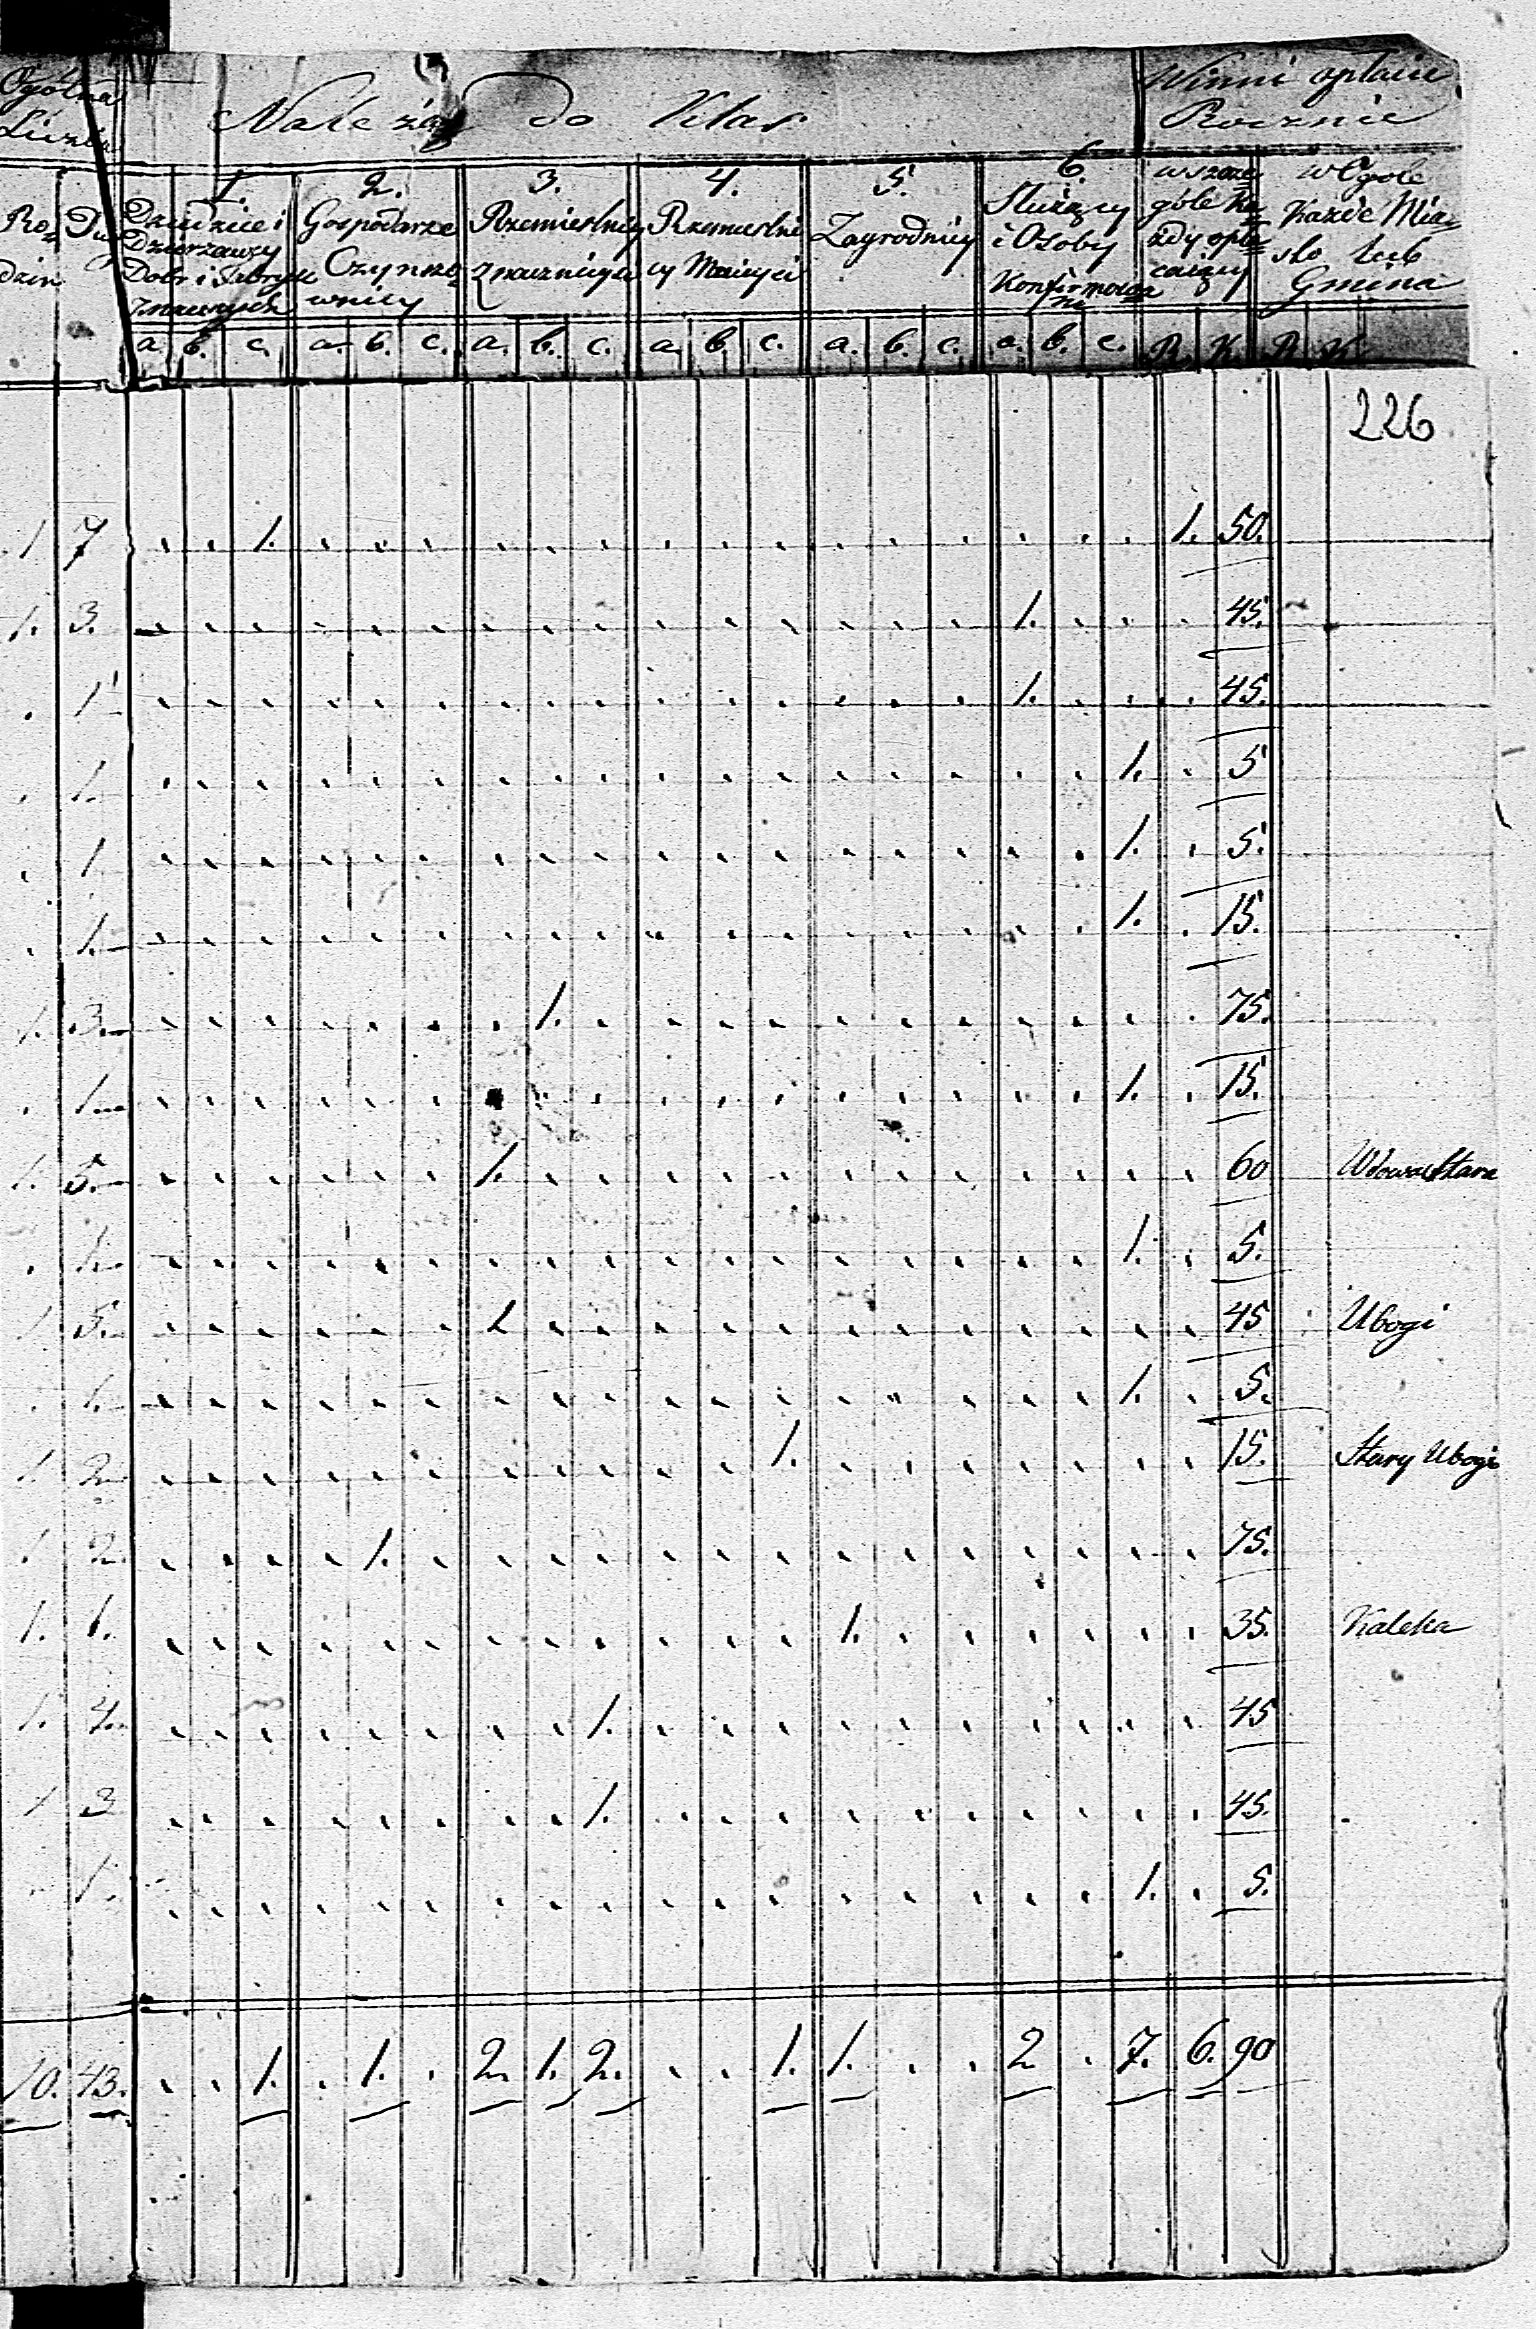 Ogólna Należą do Klas Winni opłacić
Liczba Rocznie
Ro= Du 1. 2. 3. 4. 5. 6. w szcze w Ogóle
dzin Dziedzice i Gospodarze Rzemieślnicy Rzemieślni Zagrodnicy Służący góle Ka Każde Mia=
Dzierżawcy Czynszo= znacznieysi cy Mnieysi i Osoby żdy opła sto lub
Dobr i Fabryk wnicy Konfirmowa cający Gmina
znacznych ni
a. b. c. a. b. c. a. b. c. a. b. c. a. b. c. a. b. c. R. K. R. K.
226
1 7 . . 1. . . . . . . . . . . . . . . . 1. 50.
1. 3. . . . . . . . . . . . . . . . 1. . . . 45.
. 1 . . . . . . . . . . . . . . . 1. . . . 45.
. 1. . . . . . . . . . . . . . . . . . 1. . 5
. 1 . . . . . . . . . . . . . . . . . 1. . 5.
. 1. . . . . . . . . . . . . . . . . . 1. . 15.
1. 3. . . . . . . . 1. . . . . . . . . . . . 75.
. 1. . . . . . . . . . . . . . . . . . 1. . 15.
1. 5. . . . . . . 1. . . . . . . . . . . . . 60 Wdowa Stara
. 1. . . . . . . . . . . . . . . . . . 1. . 5.
1 5. . . . . . . 1 . . . . . . . . . . . . 45 Ubogi
. 1. . . . . . . . . . . . . . . . . . 1. . 5.
1 2 . . . . . . . . . . . 1. . . . . . . . 15. Stary Ubogi
1 2 . . . . 1. . . . . . . . . . . . . . . 75.
1. 1. . . . . . . . . . . . . 1. . . . . . . 35. Kaleka
1. 4. . . . . . . . . 1. . . . . . . . . . . 45
1 3 . . . . . . . . 1. . . . . . . . . . . 45.
. 1. . . . . . . . . . . . . . . . . . 1. . 5.
10. 43. . . 1. . 1. . 2. 1. 2. . . 1. 1. . . 2 . 7. 6. 90